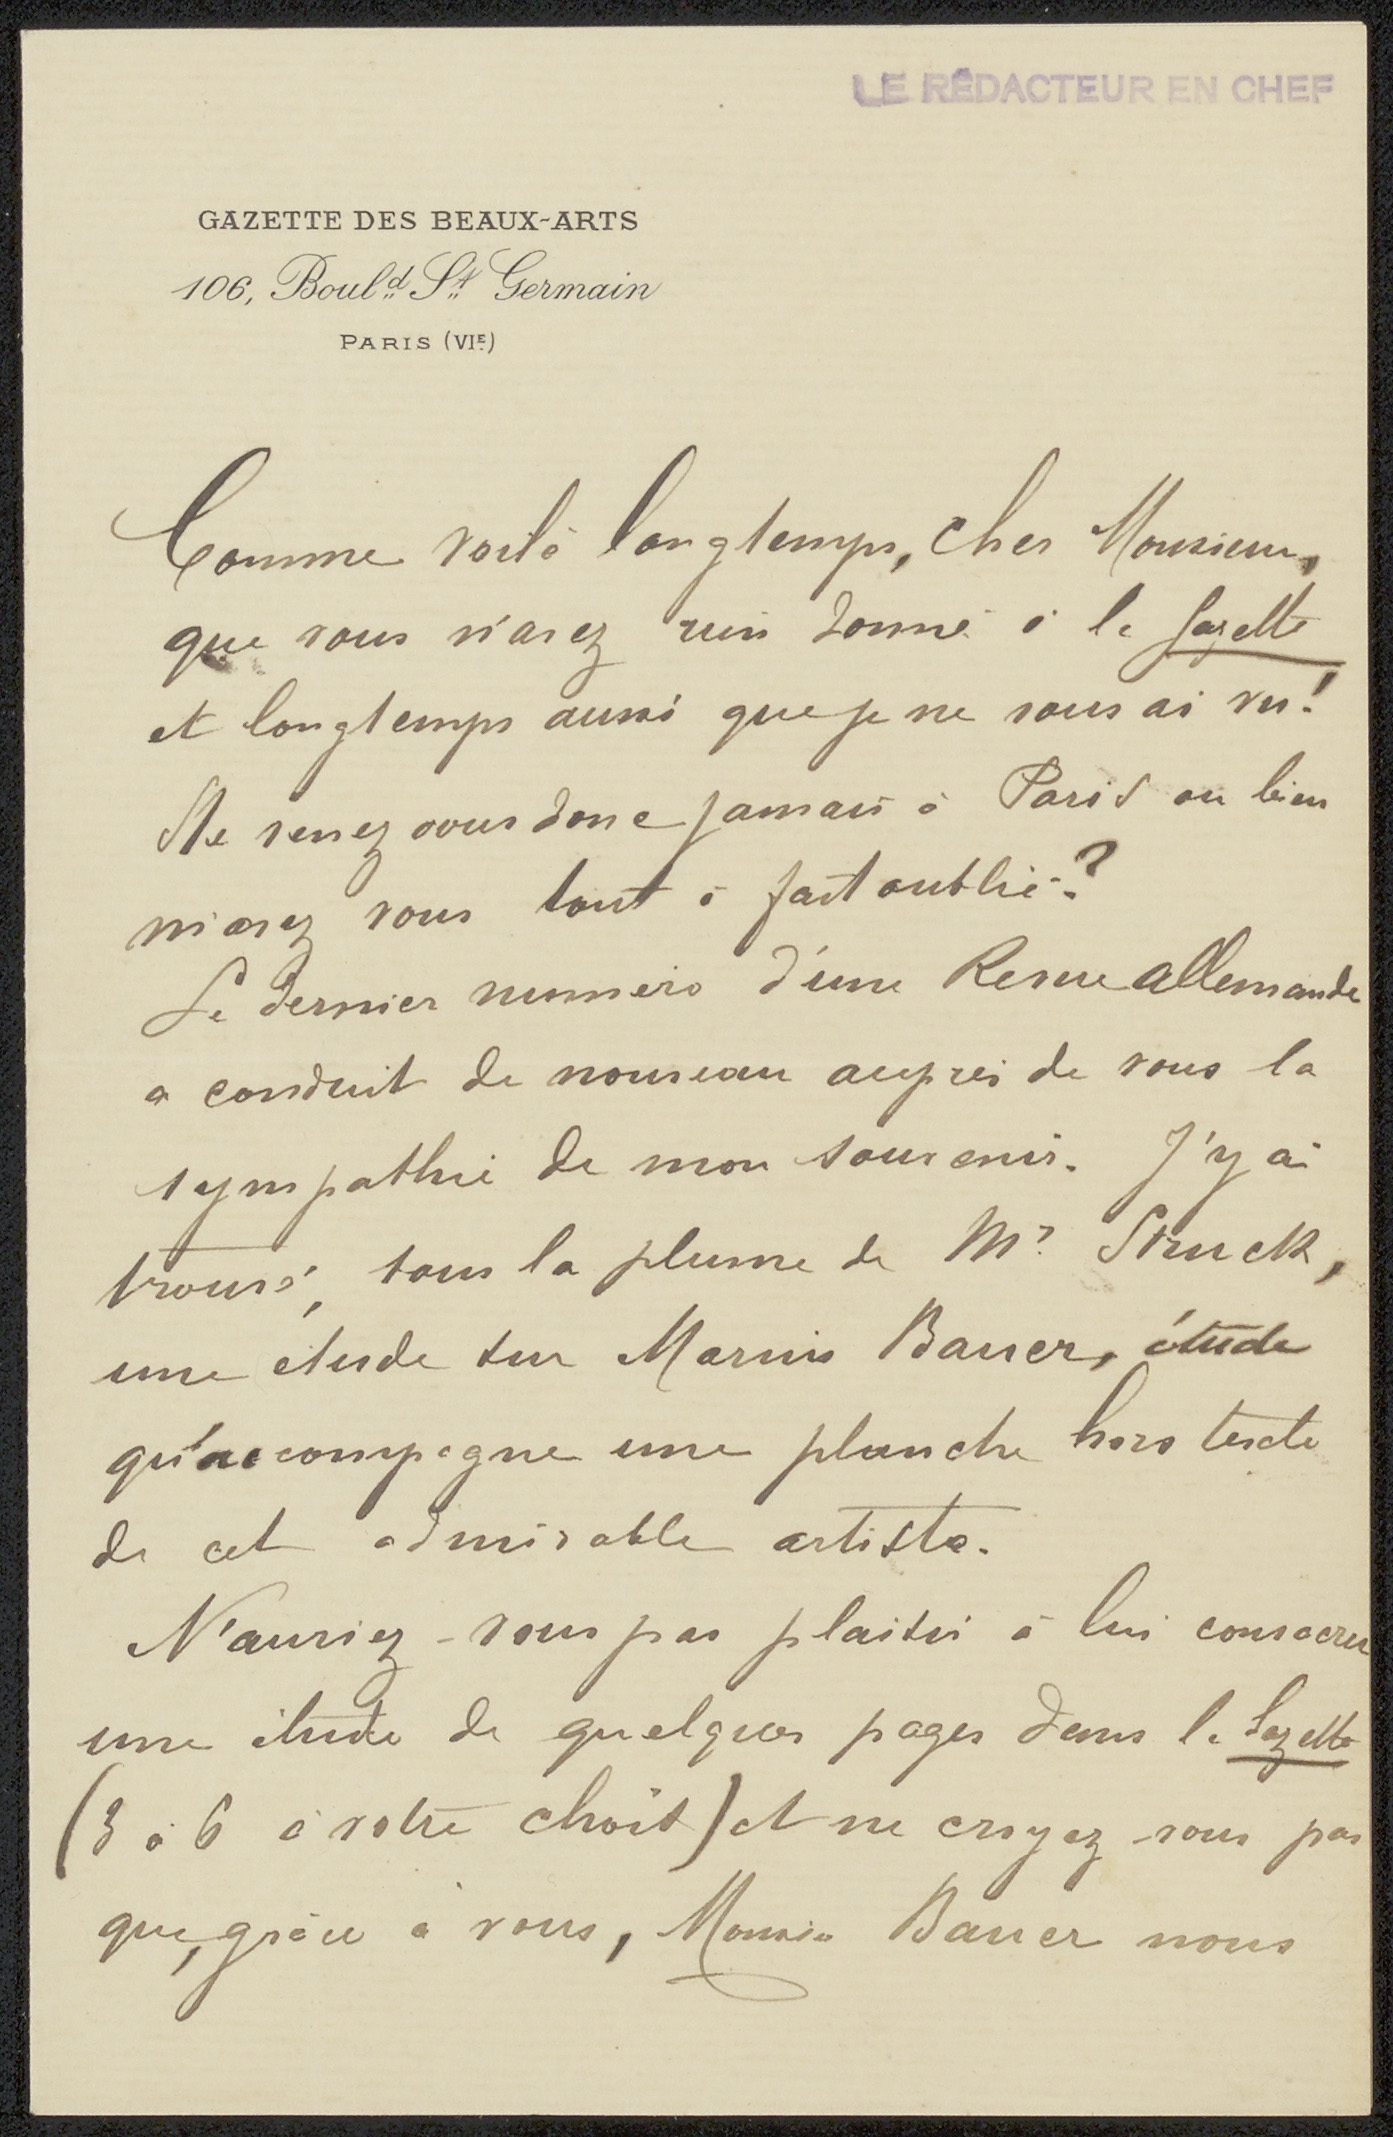 LE RÉDACTEUR EN CHEF
GAZETTE DES BEAUX-ARTS
106, Boul.d St. Germain
PARIS (VIE.)
Comme voilà longtemps, cher Monsieur,
que vous n'avez rien donné à la Gazette
et longtemps aussi que je ne vous ai vu!
Ne venez vous donc jamais à Paris ou bien
m'avez vous tout à fait oublié?
Le dernier numéro d'une Revue allemande
a conduit de nouveau auprès de vous la
sympathie de mon souvenir. J'y ai
trouvé, sous la plume de Mr. Struck,
une étude sur Marius Bauer, étude
qu'accompagne une planche hors texte
de cet admirable artiste.
N'auriez-vous pas plaisir à lui consacrer
une étude de quelques pages dans la Gazette
(3 à 6 à votre choix) et ne croyez-vous pas
que, grâce à vous, Monsieur Bauer nous